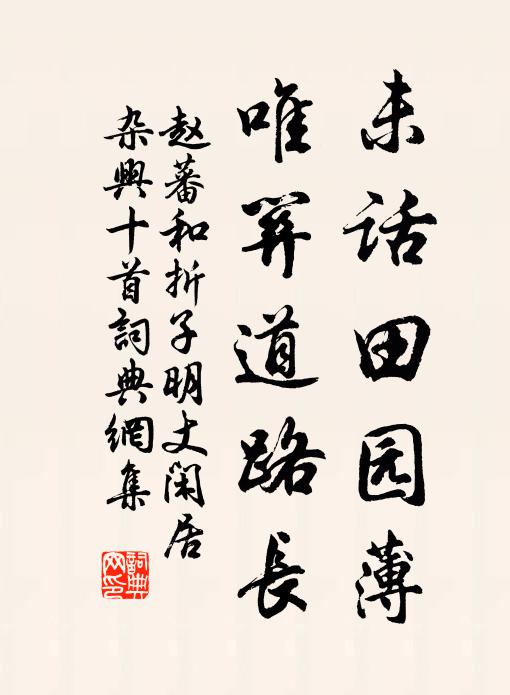 未话田园薄
唯筭道路長
赵蕃和折子明丈閑居
杂興十首詞典網集
詞典网印